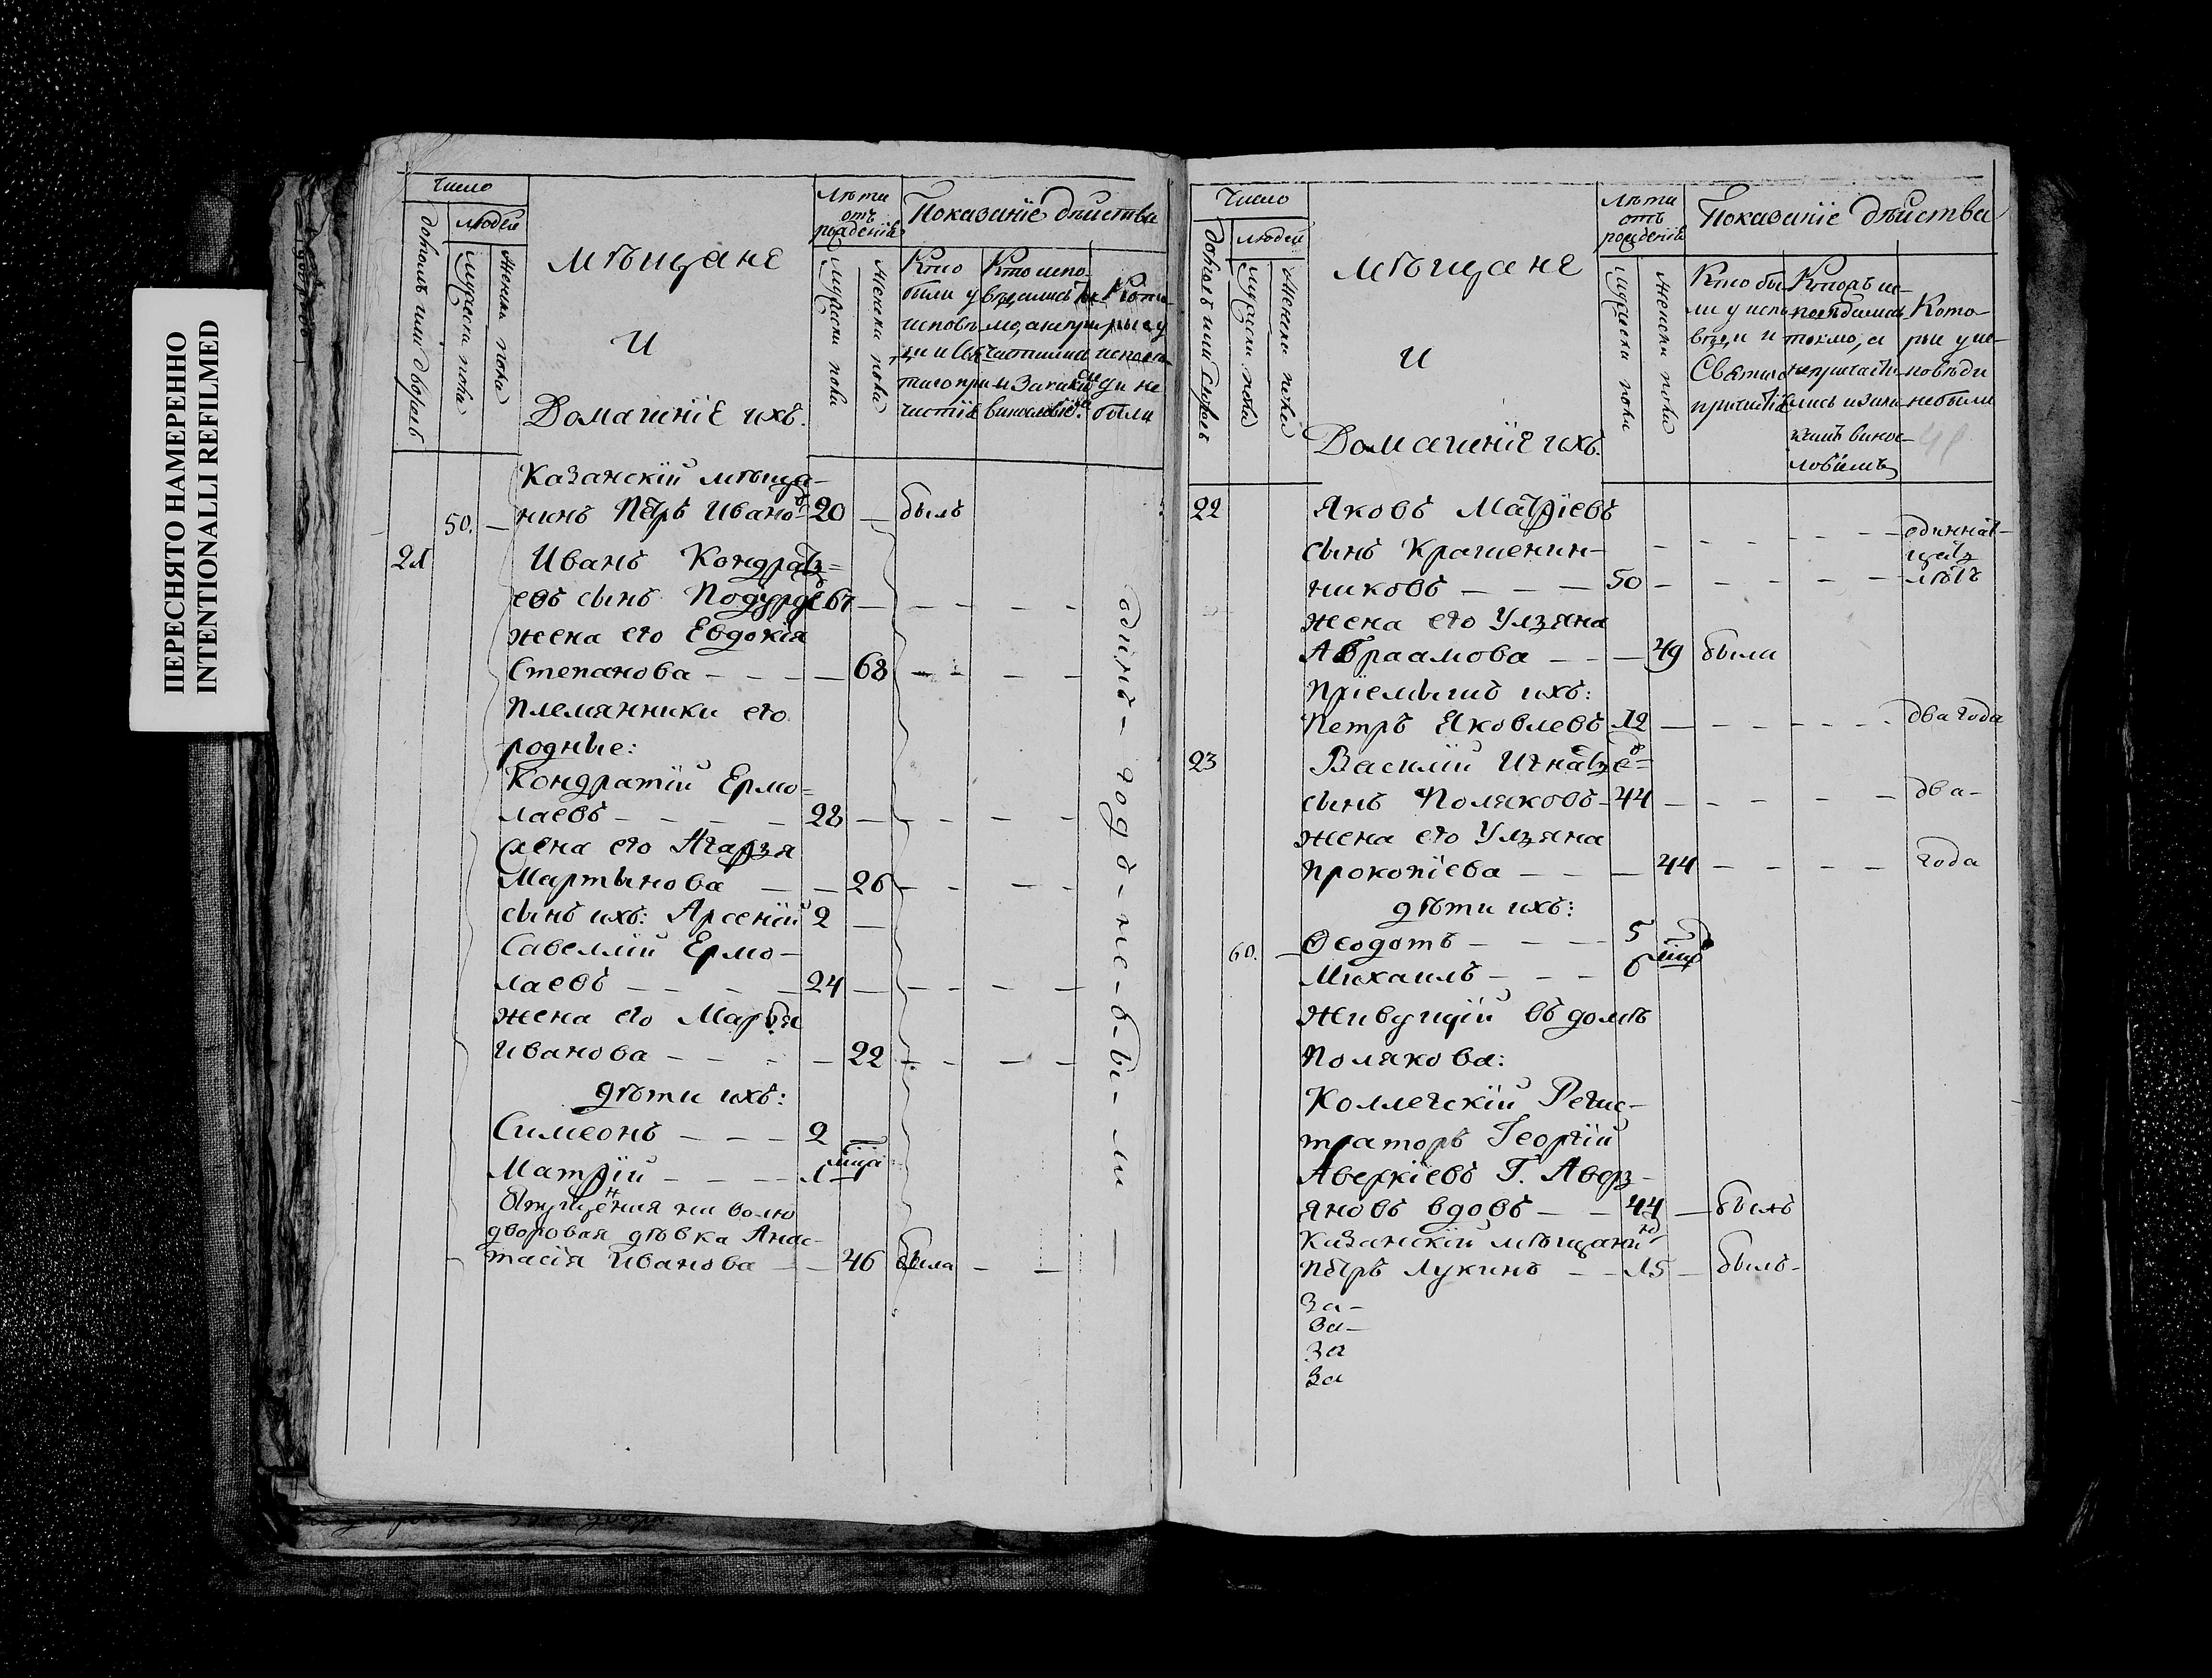 ПЕРЕСНЯТО НАМЕРЕННО
INTENTIONALLI REFILMED
Число
людей
домовъ или дворовъ
мужеска пола
женска пола
мѣщане
и
Домашніе ихъ.
Лѣта
отъ
рожденія
мужеска пола
женска пола
Показаніе дѣйства
Кто
были у
исповѣ
ди и Свя
таго при
частія
Кто испо-
вѣдались то
кмо, а непри
частились
и за какимъ
винословіемъ
Кото-
рые у
исповѣ
ди не
были
Казанскій мѣща-
50. — нинъ Пётръ Ивановъ 20 — былъ
21 Иванъ Кондратье
въ сынъ Подуруе 67 — — — — —
жена его Евдокія
Степанова — — — — 68 — — — —
Племянники его
родные:
Кондратій Ермо=
лаевъ — — — — 28 — — — — —
жена его Агафья
Мартынова — — 26 — — — —
сынъ ихъ: Арсеній 2 —
Савеллій Ермо-
лаевъ — — — — 24 — — — — —
жена его Марья
Иванова — — — — 22 — — — —
дѣти ихъ:
Симеонъ — — — 2
Матѳій — — — 1
Отпущённая на волю
дворовая дѣвка Анас-
тасія Иванова — — 46 была — —
одинъ - годъ - не - б - ы - ли —
Число
людей
домовъ или дворовъ
мужеска пола
женска пола
мѣщане
и
Домашніе ихъ.
Лѣта
отъ
рожденія
мужеска пола
женска пола
Показаніе дѣйства
Кто бы
ли у испо
вѣди и
Святаго
причастія
Которъ ис-
повѣдались
токмо, а
не причасти-
лись и за ка
кимъ винос-
ловіемъ
Кото-
рые у ис-
повѣди
не были
22 Яковъ Матѳіевъ
сынъ Крашенин- — — — — — — одиннат-
цать
никовъ — — — 50 — — — — — лѣтъ
жена его Ульяна
Авраамова — — — 49 были
Пріемышъ ихъ:
Петръ Яковлевъ 12 — — — — — два года
23 Василій Игнатье=въ
сынъ Поляковъ — 44 — — — — два-
жена его Ульяна
Прокопіева — — — 44 — — — — года
дѣти ихъ:
60. — Ѳеодотъ — — — 5
Михаилъ — — — 6
Живущій въ домѣ
Полякова:
Коллегскій Регис-
траторъ Георгій
Аверкіевъ Г. Аверь-
яновъ вдовъ — — 44 — былъ
Казанскій мѣщанинъ
Пётръ Лукинъ — — 15 — былъ-
За-
За-
За
За